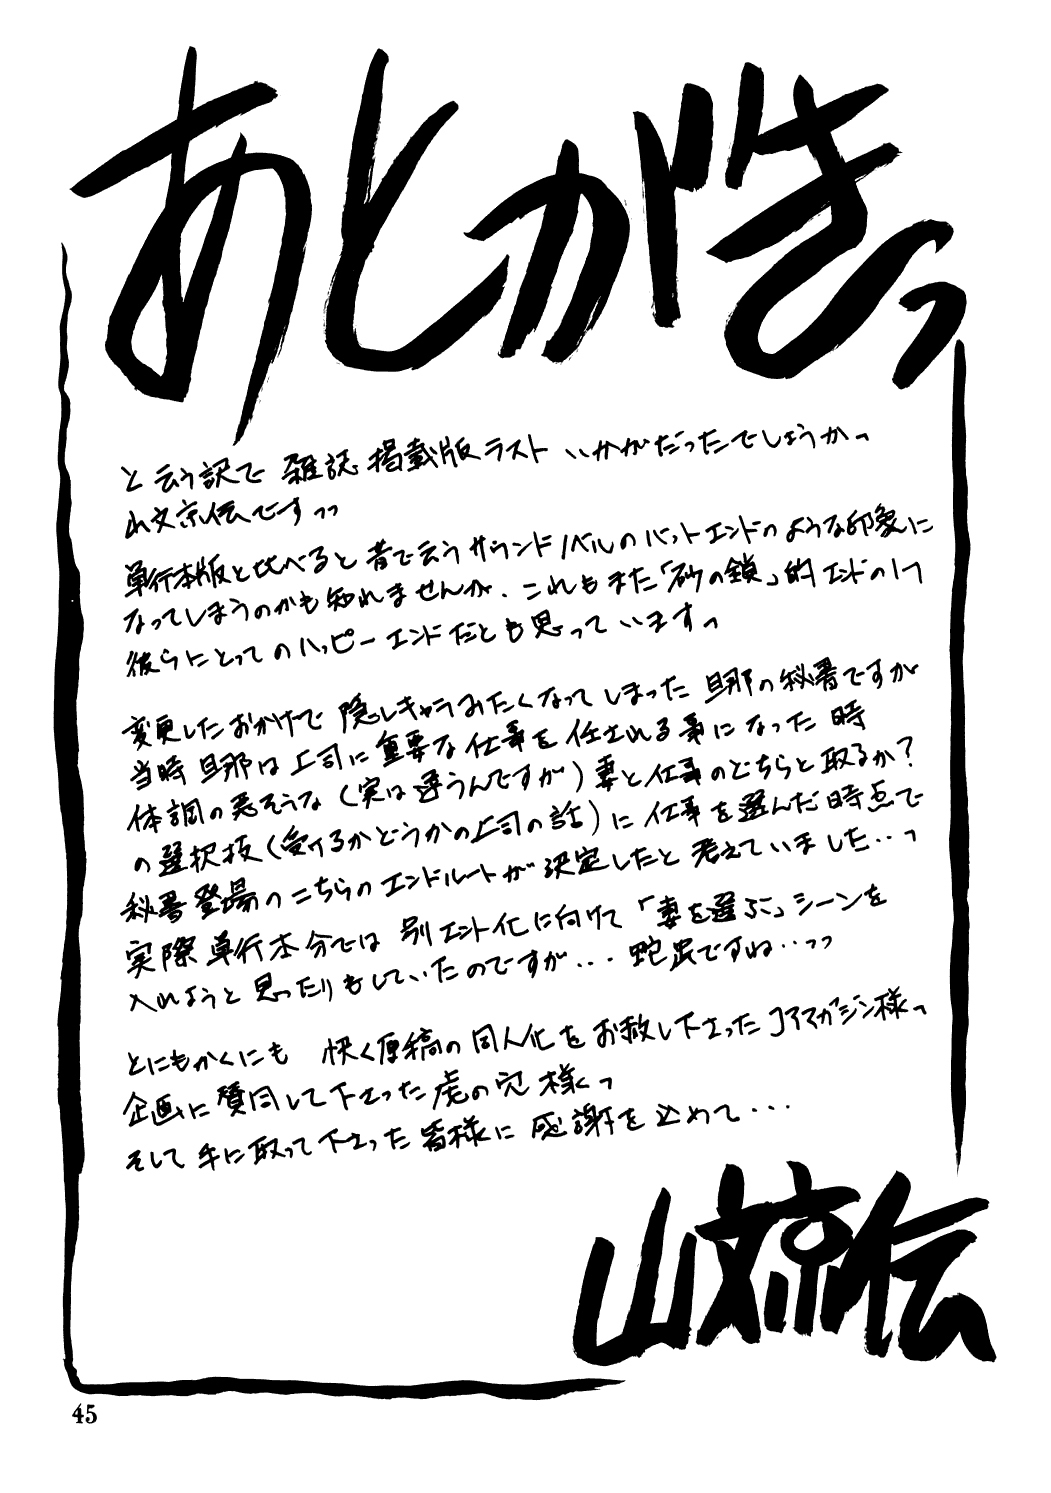 あとがきっ
と云う訳で 雑誌掲載版ラスト いかがだったでしょうかっ
山文京伝ですっっ
単行本版と比べると昔で云うサウンドノベルのバットエンドのような印象に
なってしまうのかも知れませんが、これもまた「砂の鎖」的エンドの1つ
彼らにとってのハッピーエンドだとも思っていますっ
変更したおかげで 隠しキャラみたくなってしまった 旦那の秘書ですが
当時 旦那は上司に重要な仕事を任される事になった時
体調の悪そうな(実は違うんですが)妻と仕事のどちらと取るか?
の選択技(受けるかどうかの上司の話)に仕事を選んだ時点で
秘書登場のこちらのエンドルートが決定したと 考えていました‥っ
実際単行本分では 別エント化に向けて「妻を選ぶ」シーンを
入れようと思ったりもしていたのですが... 蛇足ですね‥っっ
とにもかくにも 快く原稿の同人化をお赦し下さったコアマガジン様っ
企画に賛同して下さった虎の穴様くっ
そして手に取って下さった皆様に 感謝を込めて...
山文京伝
45